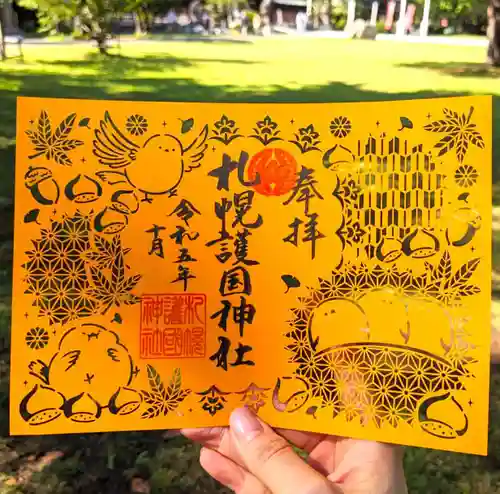 奉拝
札幌護國神社
令和五年
十月
札幌
護國
神社